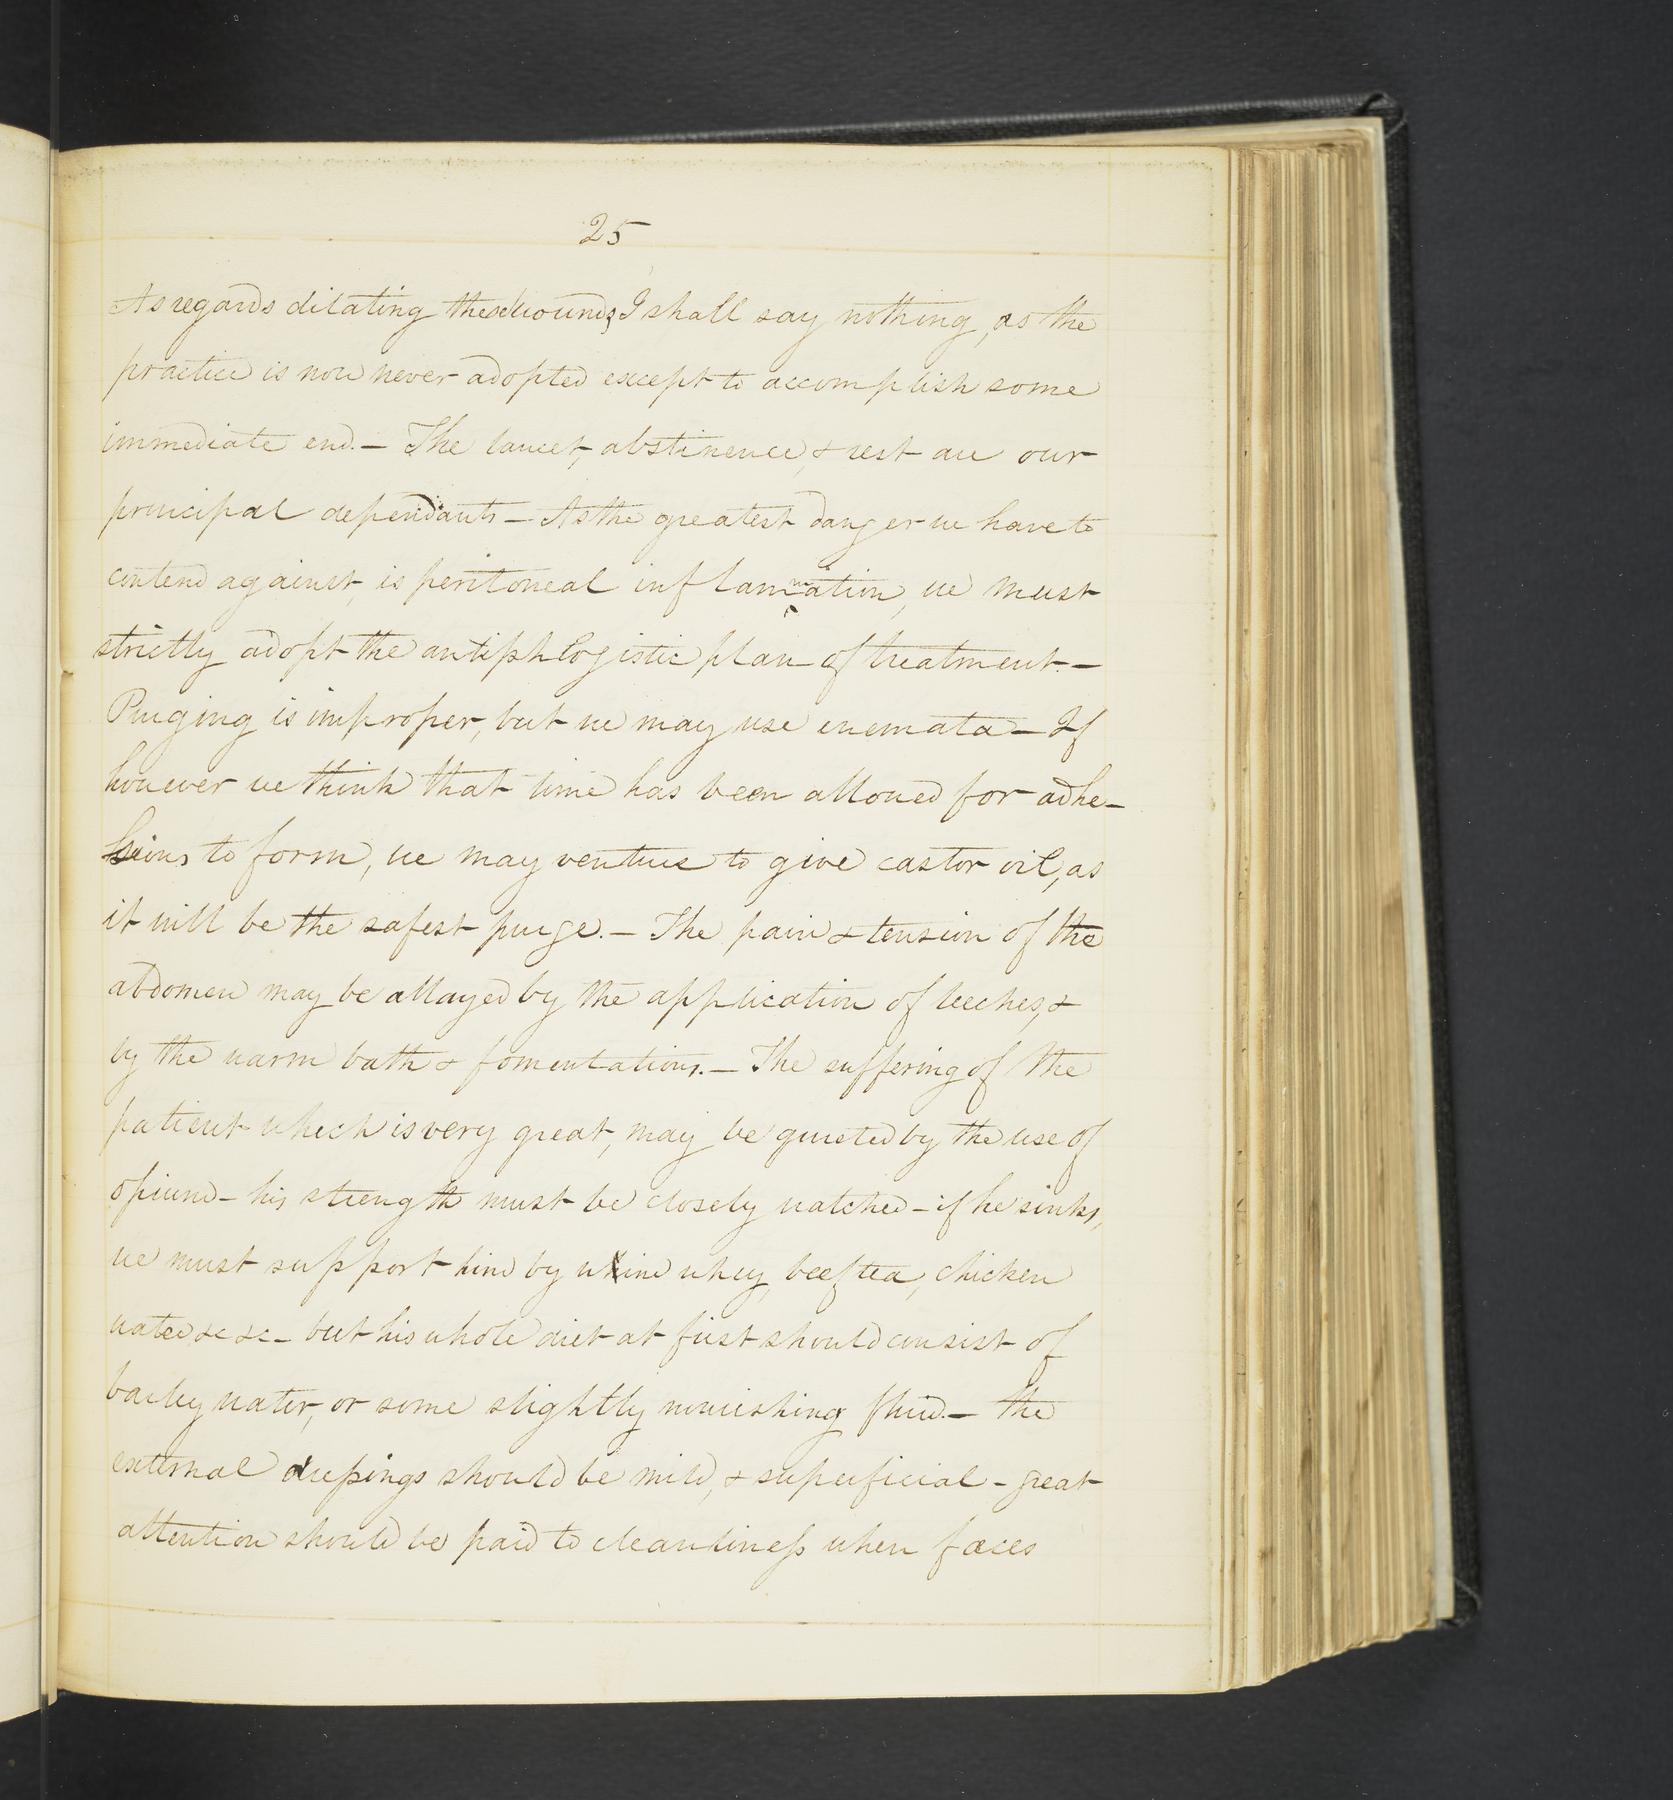 25
As regards dilating these wounds, I shall say nothing, as the
practice is now never adopted except to accomplish some
immediate end. — The lancet, abstinence, & rest are our
principal dependants — As the greatest danger we have to
contend against, is peritoneal inflammation, we must
strictly adopt the antiphlogistic plan of treatment. —
Purging is improper, but we may use enemata — If
however we think that time has been allowed for adhe-
sions to form, we may venture to give castor oil, as
it will be the safest purge. — The pain & tension of the
abdomen may be allayed by the application of leeches, &
by the warm bath & fomentations. — The suffering of the
patient which is very great, may be quieted by the use of
opium — his strength must be closely watched — if he sinks,
we must support him by wine whey, beef tea, chicken
water &c &c — but his whole diet at first should consist of
barley water, or some slightly nourishing fluid. — The
external dressings should be mild, & superficial — great
attention should be paid to cleanliness when fæces